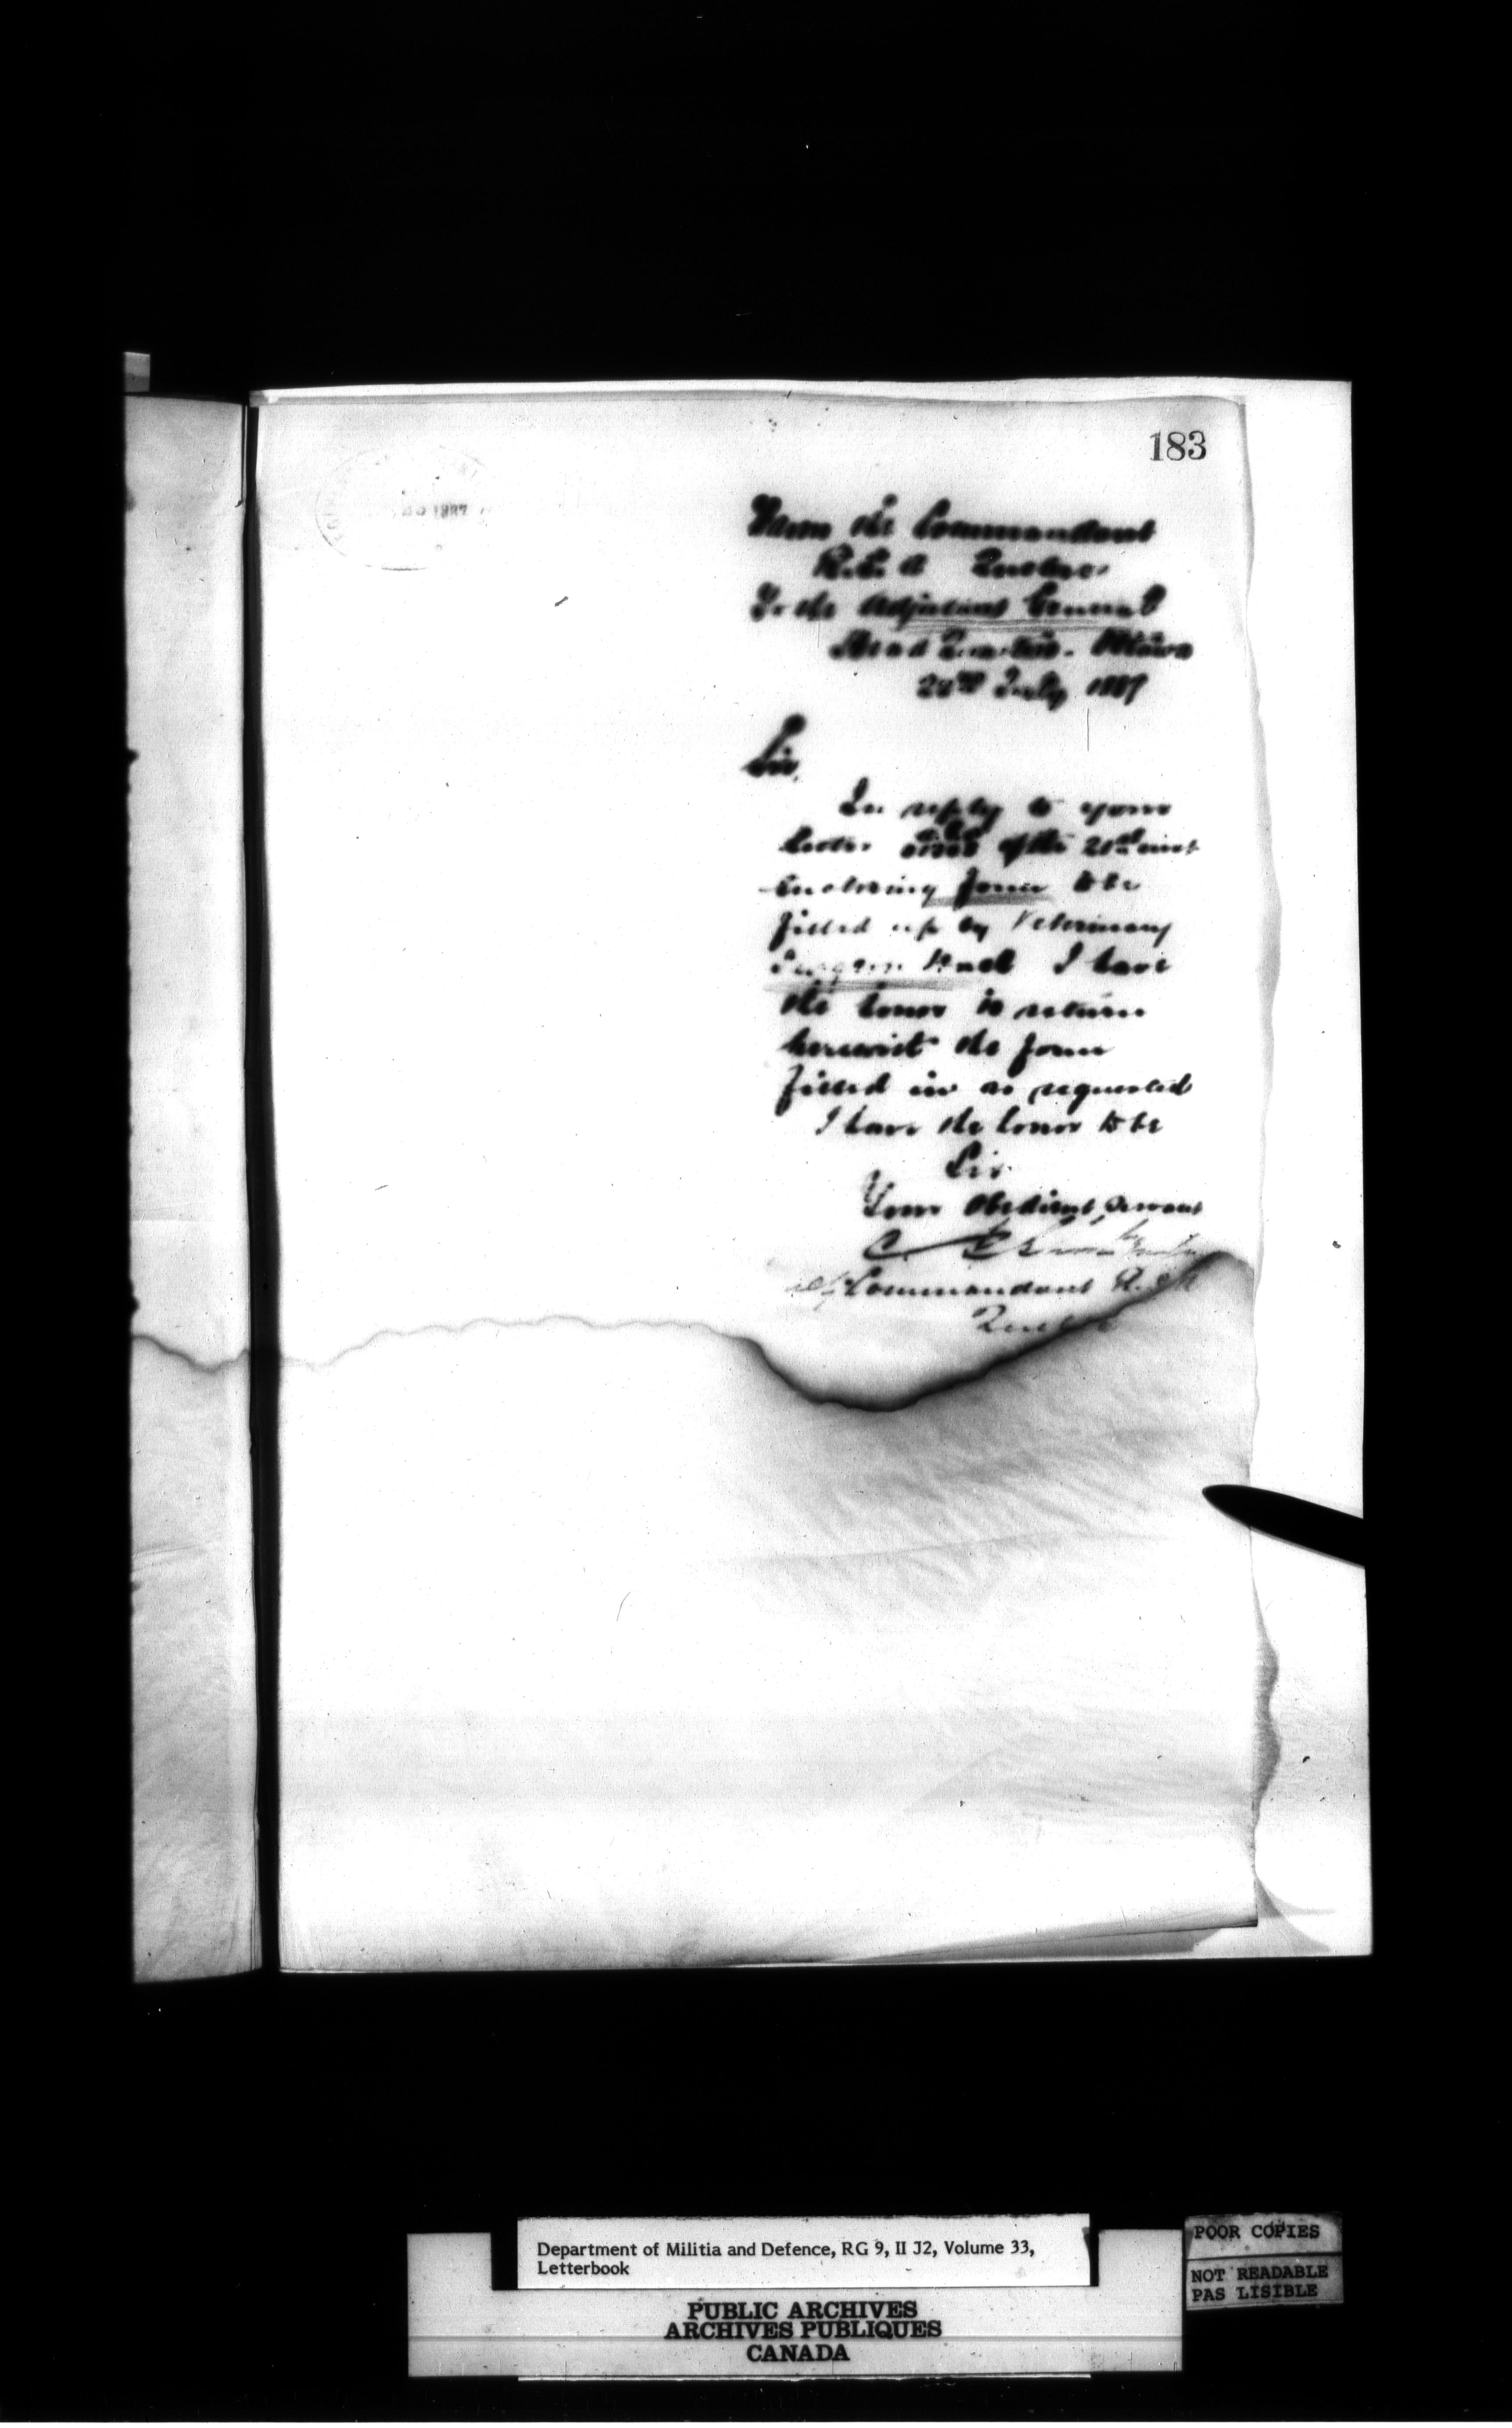 183
1887
From the Commandant
R.C.A Quebec
To the Adjutant General
Head Quarters. Ottawa
July 1887
Sir,
In reply to your
letter of the 21st inst
Enclosing form to be
filled up by Veterinary
Surgeon I have
the honor to return
herewith the form
filled in as requested
I have the honor to be
Sir
Your Obedient Servant
C.
Commandant
Quebec
Department of Militia and Defence, RG 9, II J2, Volume 33,
Letterbook
PUBLIC ARCHIVES
ARCHIVES PUBLIQUES
CANADA
POOR COPIES
NOT READABLE
PAS LISIBLE